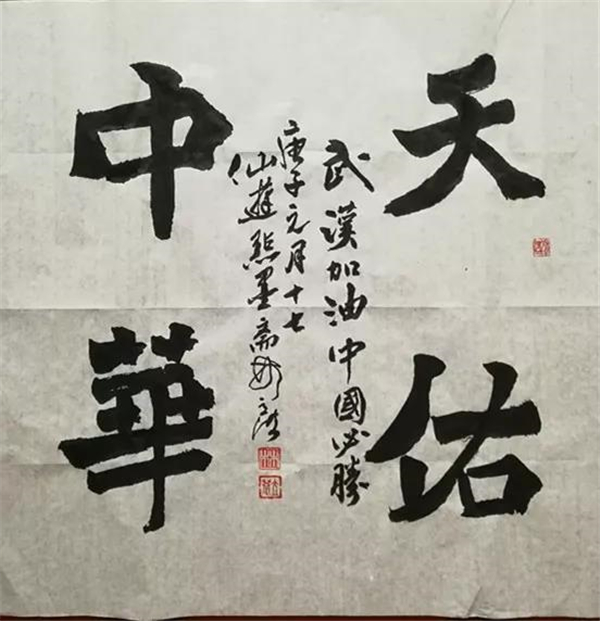 天佑
中華
武漢加油中國必勝
庚子元月十七
仙遊點墨斋